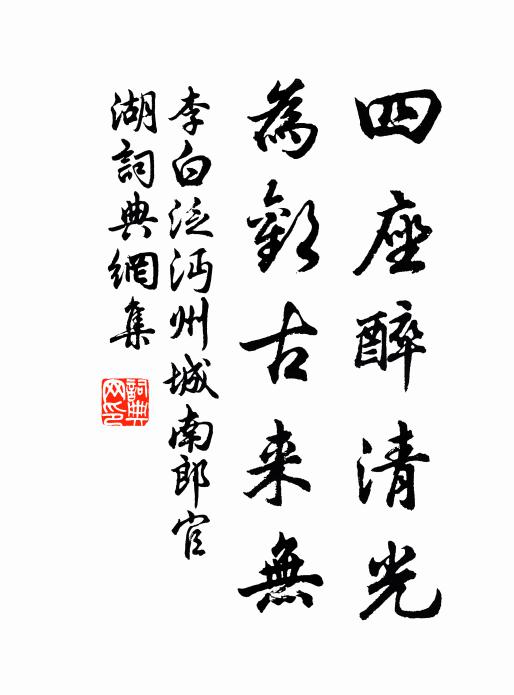 四座醉清光
為歡古来無
李白泛沔州城南郎官
湖詞典網集
詞典
网印